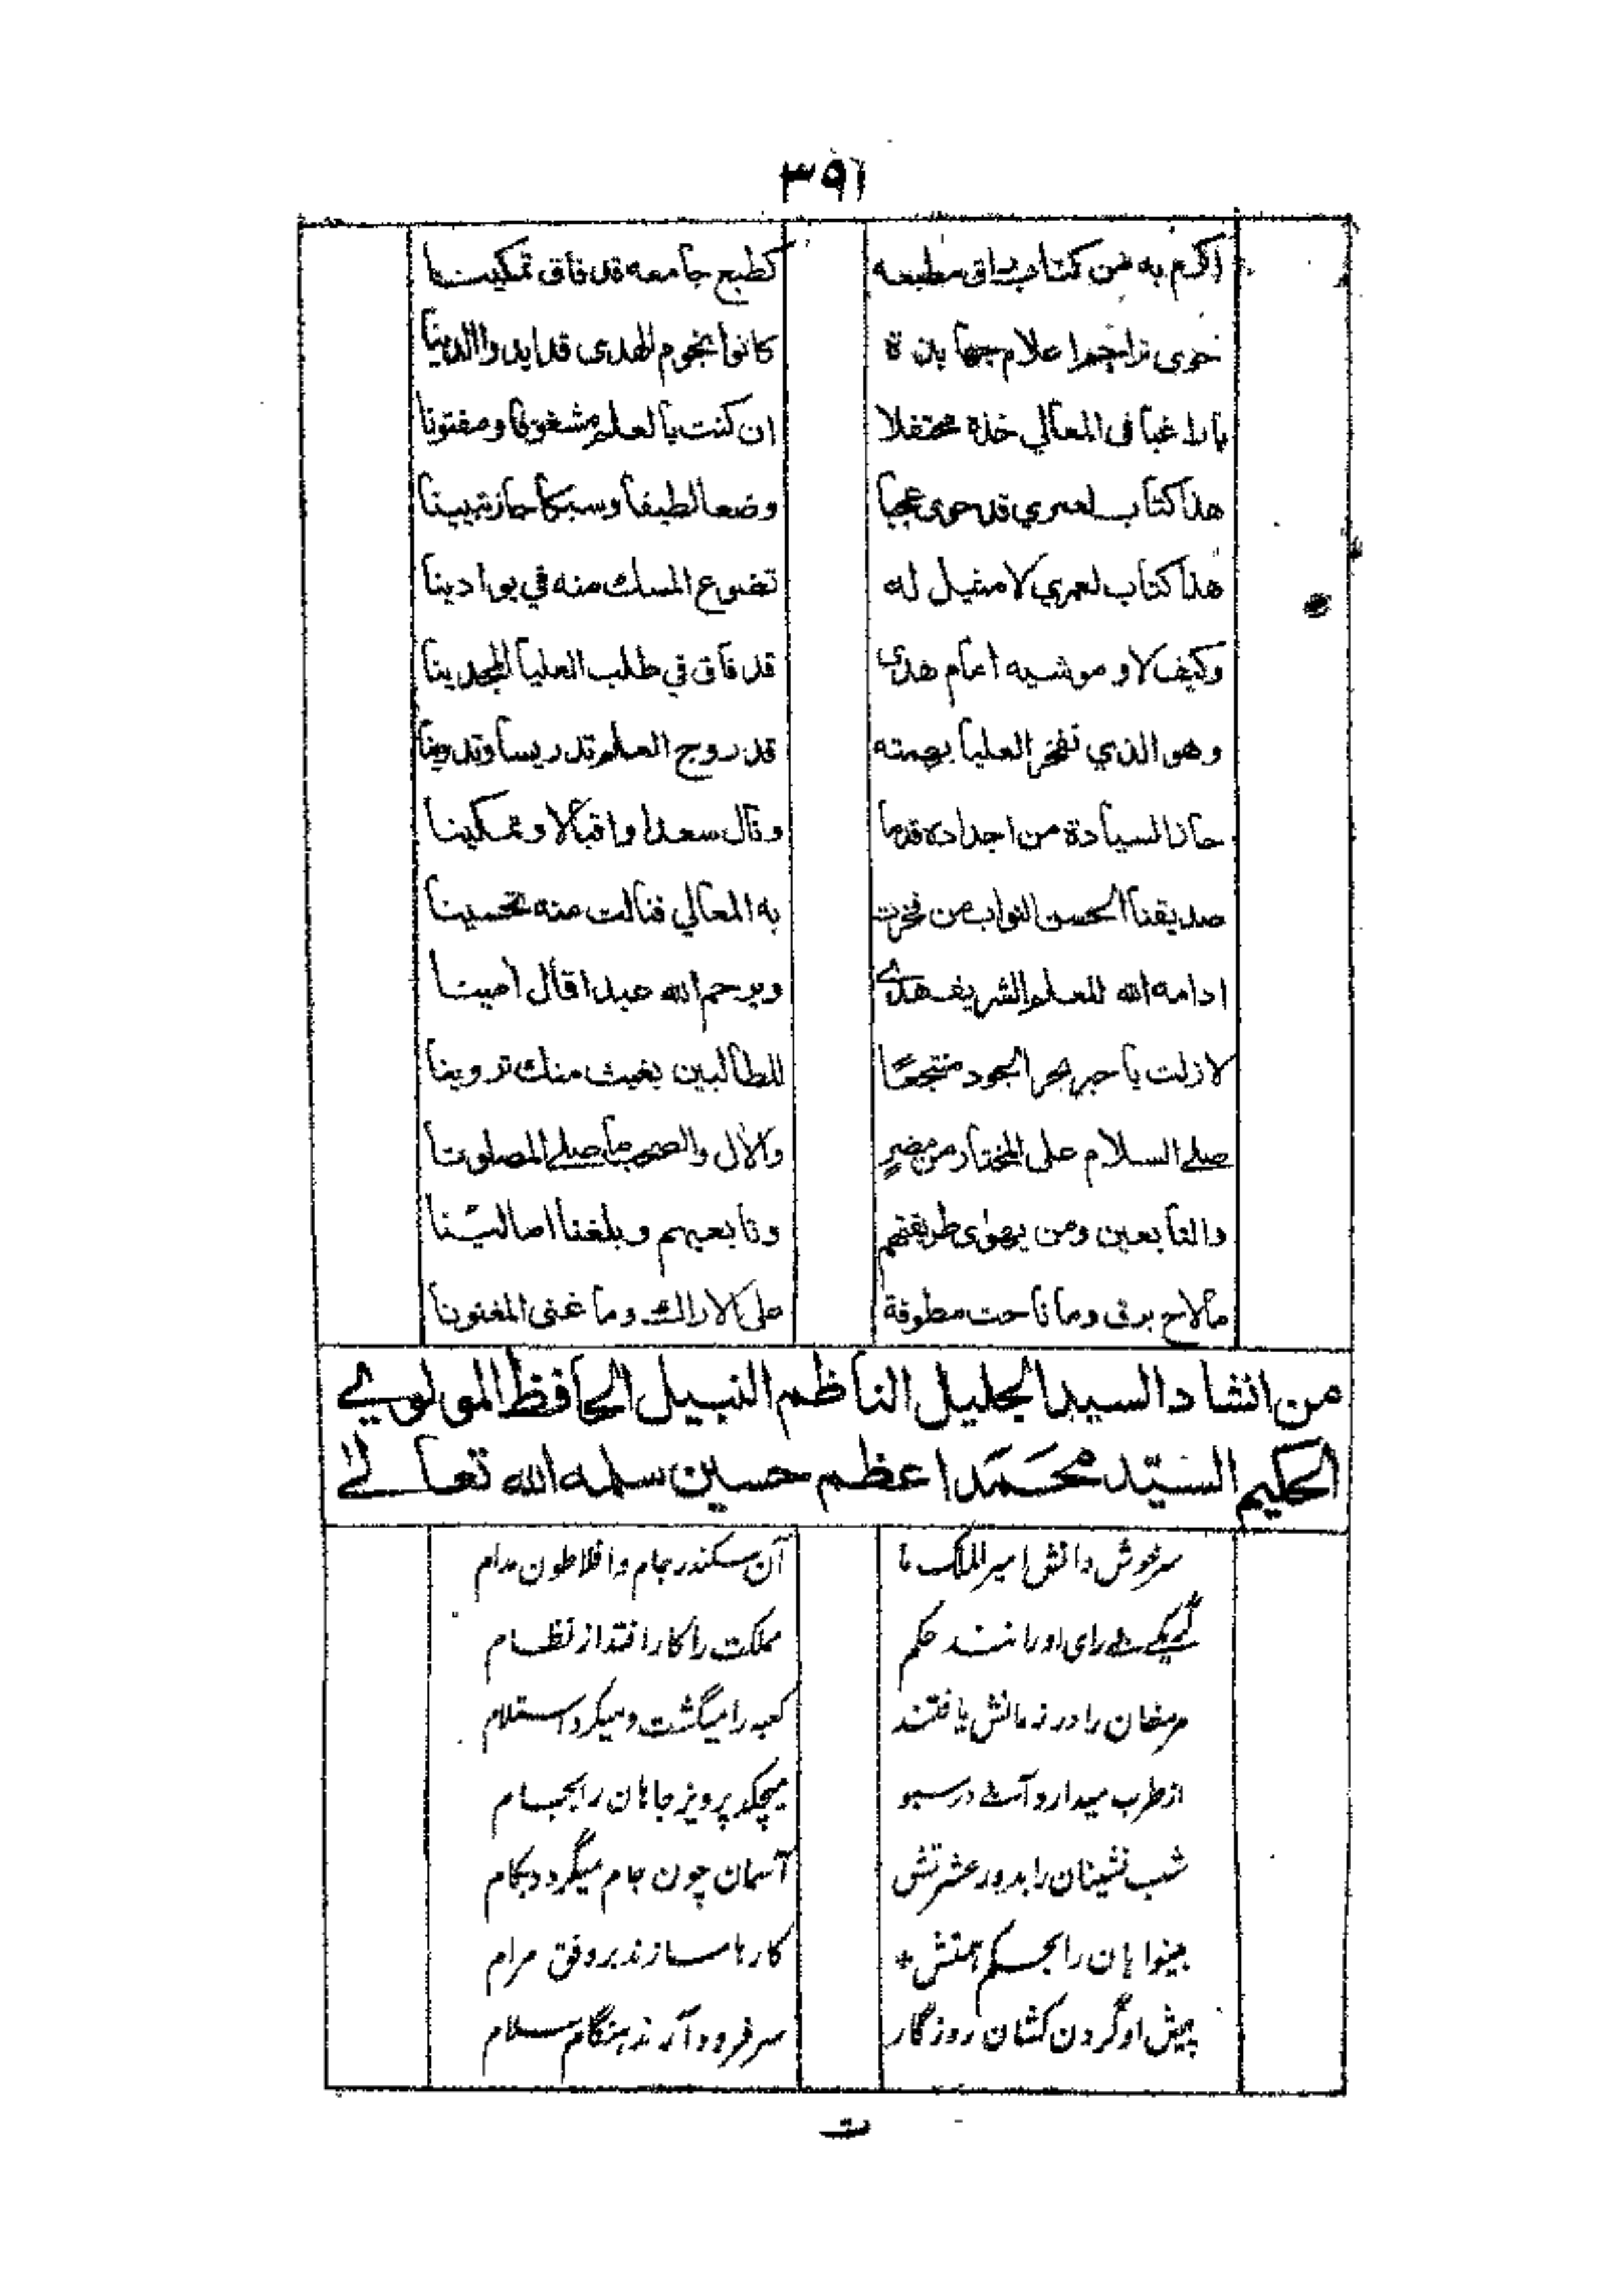 ٣٩٦
اكرم به من كتاب راق مطبعه كطبع جامعه قد فاق تمكينا
حوى تراجم اعلام جهابذة كانوا نجوم الهدى قد ايدوا الدينا
يا راغبا فى المعالي خذه محتفلا ان كنت بالعلم مشغوفا ومفتونا
هذا كتاب لعمري قد حوى عجبا وضعا لطيفا وسبكا حاز تبيينا
هذا كتاب لعمري لا مثيل له تضوع المسك منه في بوادينا
وكيف لا و موشيه امام هدى قد فاق في طلب العليا المجدينا
وهو الذي تفخر العليا بهمته قد روج العلم تدريسا وتدوينا
حاز السيادة من اجداده قدما ونال سعدا واقبالا وتمكينا
صديقنا الحسن النواب من فخرت به المعالي فنالت منه تحسينا
ادامه الله للعلم الشريف هدى ويرحم الله عبدا قال امينا
لا زلت يا حبر بحر الجود منتجعًا للطالبين بغيث منك تروينا
صلى السلام على المختار من مضرٍ والآل والصحب ما صلى المصلونا
والتابعين ومن يهوى طريقتهم وتابعيهم وبلغنا امانينا
ما لاح برق وما ناحت مطوقة على الاراك وما غنى المغنونا
من انشاد السيد الجليل الناظم النبيل الحافظ المولوي
الحكيم السيّد محمَّد اعظم حسين سلمه الله تعالى
سرخوش دانش امير الملك ما آن سكندر جام و افلاطون مدام
گر يكے بے راى او راند حكم مملكت را كار افتد از نظام
هر مغان را در زمانش يافتند كعبه را ميگشت و ميكرد استلام
از طرب ميدارد آبے در سبو ميچكد پرويز جامان را بجام
شب نشينان را بدور عشرتش آسمان چون جام ميگردد بكام
بينوايان را بحكم همتش * كارها سازند بر وفق مرام
پيش او گردن كشان روزگار سر فرود آرند هنگام سلام
ت